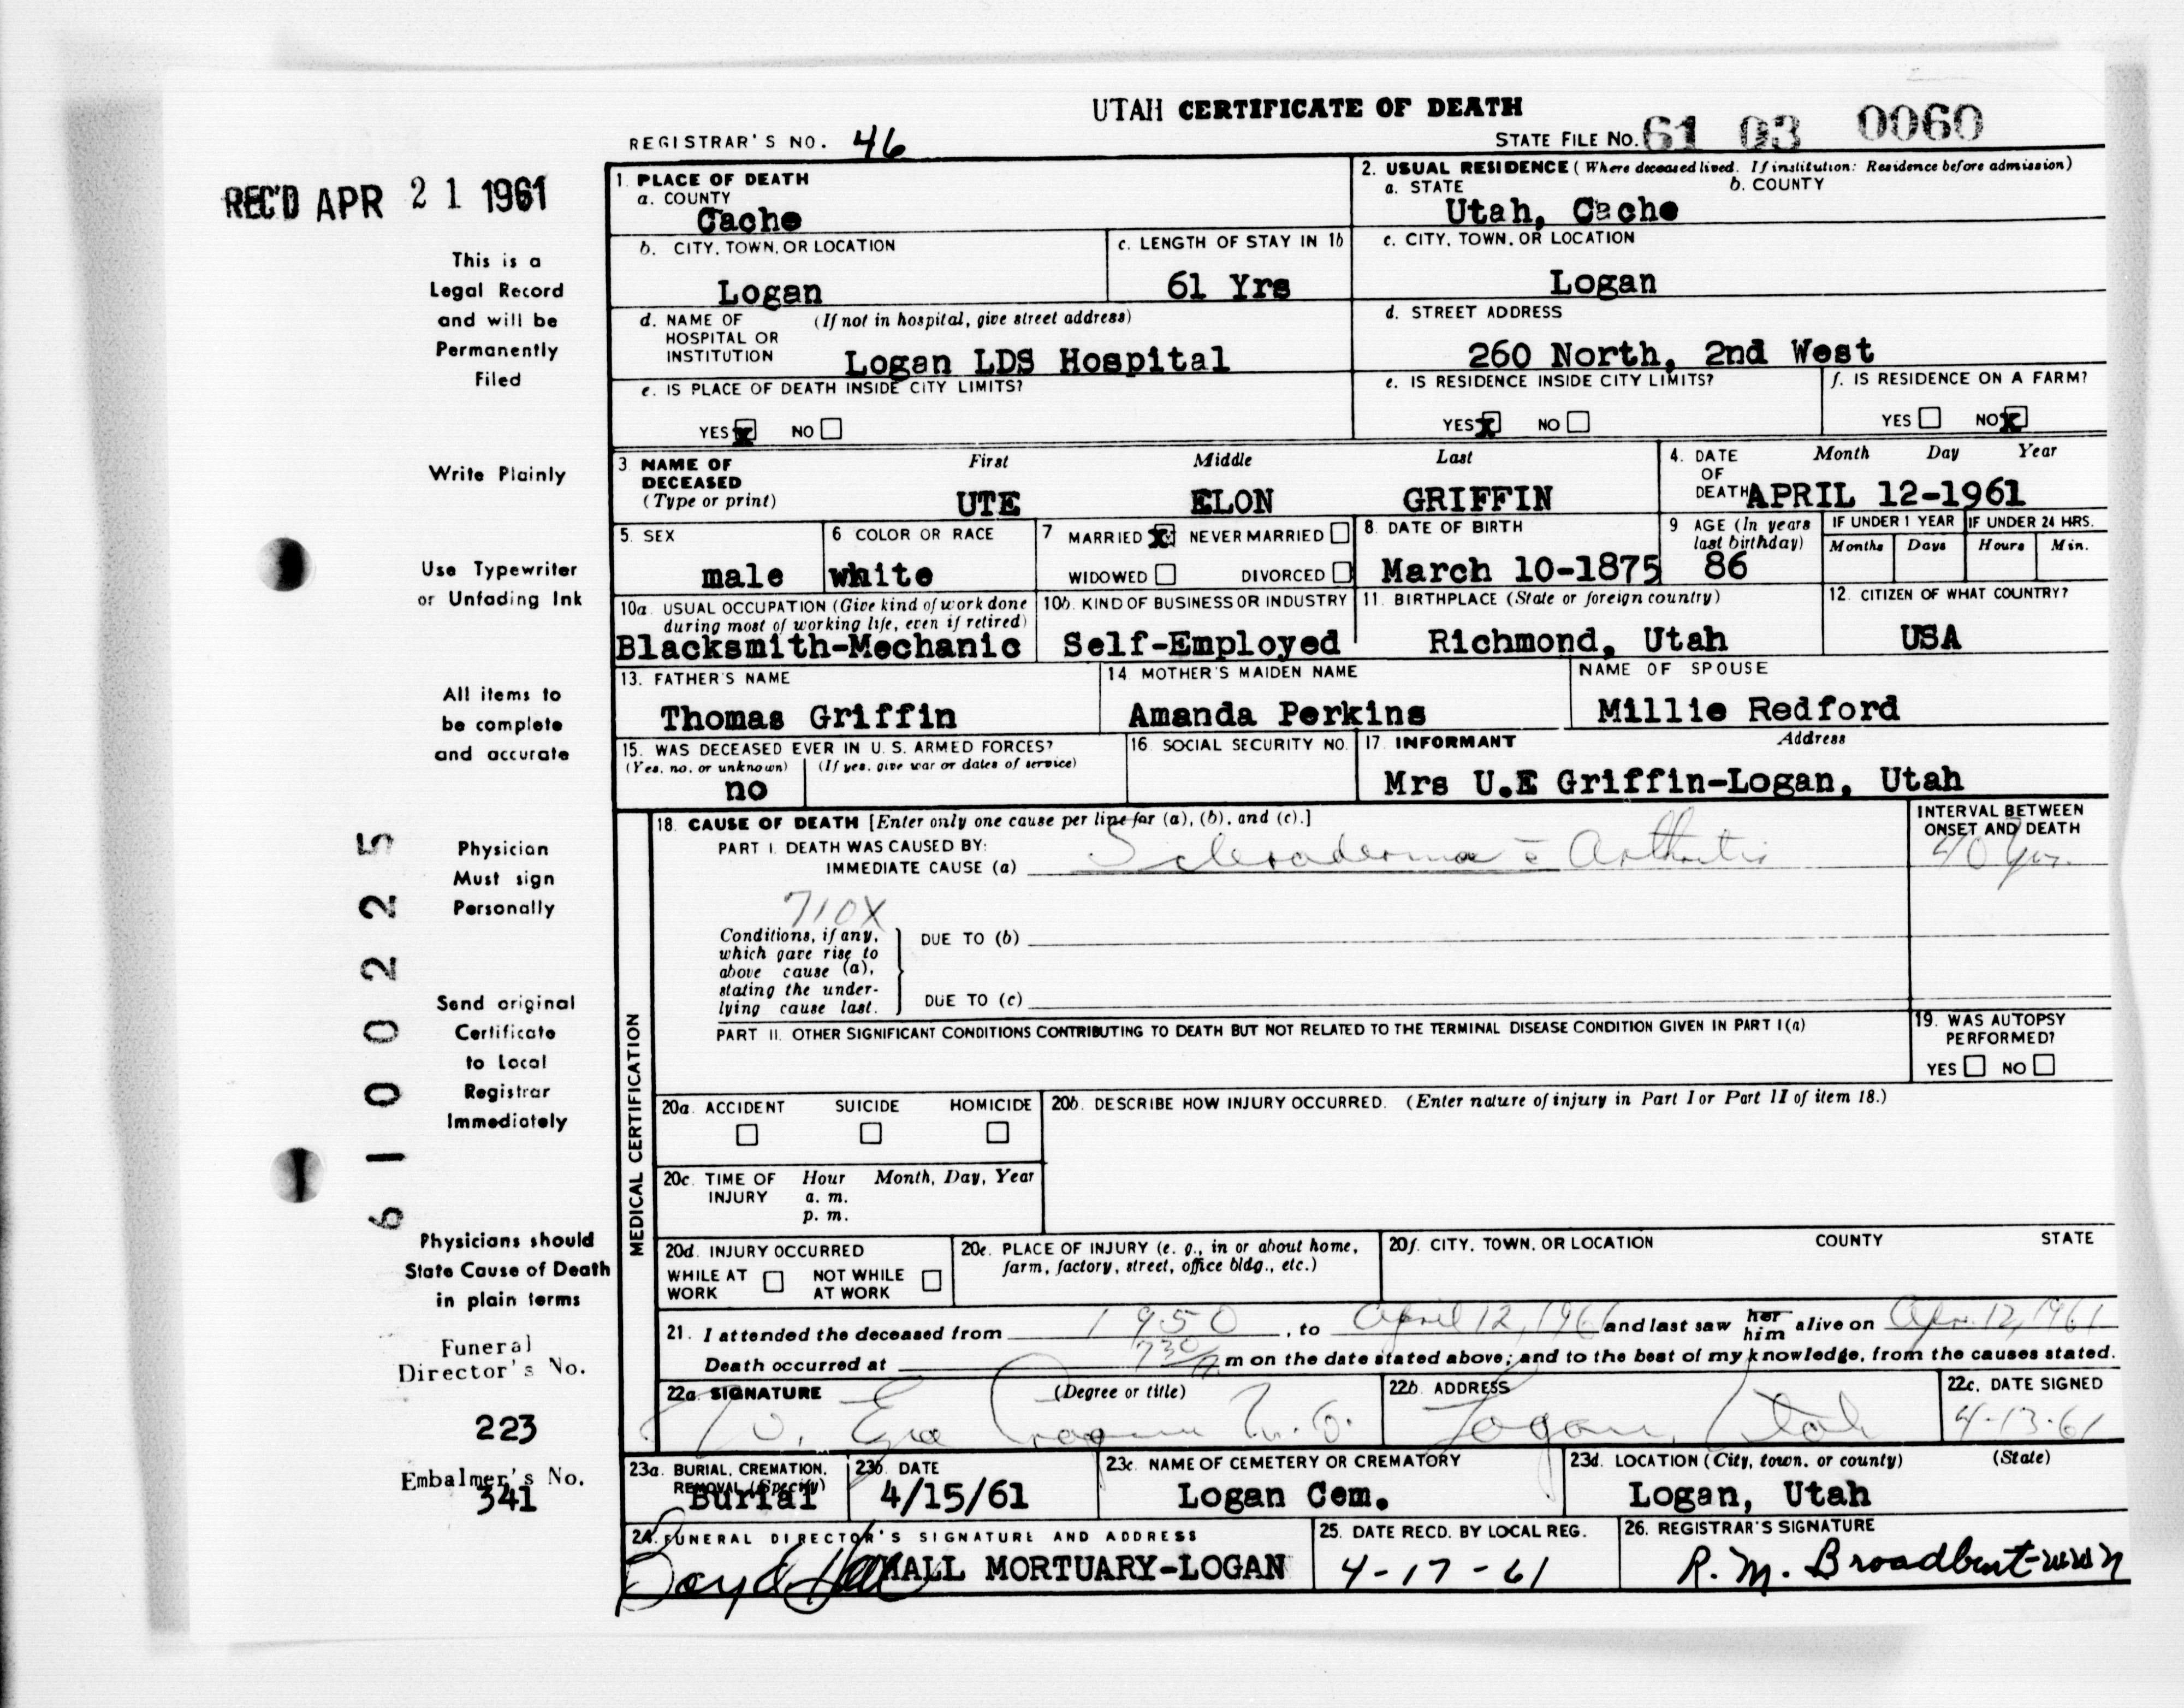 UTAH CERTIFICATE OF DEATH
REGISTRAR'S NO. 46
STATE FILE NO. 61 03 0060
REC'D APR 21 1961
This is a
Legal Record
and will be
Permanently
Filed
Write Plainly
Use Typewriter
or Unfading Ink
All items to
be complete
and accurate
Physician
Must sign
Personally
Send original
Certificate
to Local
Registrar
Immediately
Physicians should
State Cause of Death
in plain terms
6100225
Funeral
Director's No.
223
Embalmer's No.
341
1. PLACE OF DEATH
a. COUNTY
Cache
2. USUAL RESIDENCE (Where deceased lived. If institution: Residence before admission)
a. STATE b. COUNTY
Utah, Cache
b. CITY, TOWN, OR LOCATION
Logan
c. LENGTH OF STAY IN 1b
61 Yrs
c. CITY, TOWN, OR LOCATION
Logan
d. NAME OF (If not in hospital, give street address)
HOSPITAL OR
INSTITUTION Logan LDS Hospital
d. STREET ADDRESS
260 North, 2nd West
e. IS PLACE OF DEATH INSIDE CITY LIMITS?
YES X NO
e. IS RESIDENCE INSIDE CITY LIMITS?
YES X NO
f. IS RESIDENCE ON A FARM?
YES NO X
3 NAME OF
DECEASED
(Type or print)
First Middle Last
UTE ELON GRIFFIN
4. DATE Month Day Year
OF
DEATH APRIL 12-1961
5. SEX
male
6 COLOR OR RACE
white
7 MARRIED X NEVER MARRIED
WIDOWED DIVORCED
8. DATE OF BIRTH
March 10-1875
9 AGE (In years
last birthday)
86
IF UNDER 1 YEAR
Months Days
IF UNDER 24 HRS.
Hours Min.
10a. USUAL OCCUPATION (Give kind of work done
during most of working life, even if retired)
Blacksmith-Mechanic
10b. KIND OF BUSINESS OR INDUSTRY
Self-Employed
11. BIRTHPLACE (State or foreign country)
Richmond, Utah
12. CITIZEN OF WHAT COUNTRY?
USA
13. FATHER'S NAME
Thomas Griffin
14. MOTHER'S MAIDEN NAME
Amanda Perkins
NAME OF SPOUSE
Millie Redford
15. WAS DECEASED EVER IN U. S. ARMED FORCES?
(Yes, no, or unknown) (If yes, give war or dates of service)
no
16. SOCIAL SECURITY NO.
17. INFORMANT Address
Mrs U.E Griffin-Logan, Utah
MEDICAL CERTIFICATION
18. CAUSE OF DEATH [Enter only one cause per line for (a), (b), and (c).]
PART I. DEATH WAS CAUSED BY:
IMMEDIATE CAUSE (a) Scleroderma c̄ Arthritis
INTERVAL BETWEEN
ONSET AND DEATH
40 yrs.
710X
Conditions, if any,
which gave rise to
above cause (a),
stating the under-
lying cause last.
DUE TO (b)
DUE TO (c)
PART II. OTHER SIGNIFICANT CONDITIONS CONTRIBUTING TO DEATH BUT NOT RELATED TO THE TERMINAL DISEASE CONDITION GIVEN IN PART I(a)
19. WAS AUTOPSY
PERFORMED?
YES NO
20a. ACCIDENT SUICIDE HOMICIDE
20b. DESCRIBE HOW INJURY OCCURRED. (Enter nature of injury in Part I or Part II of item 18.)
20c. TIME OF Hour Month, Day, Year
INJURY a. m.
p. m.
20d. INJURY OCCURRED
WHILE AT NOT WHILE
WORK AT WORK
20e. PLACE OF INJURY (e. g., in or about home,
farm, factory, street, office bldg., etc.)
20f. CITY, TOWN, OR LOCATION COUNTY STATE
21. I attended the deceased from 1950, to April 12, 1961 and last saw her him alive on Apr. 12, 1961
Death occurred at 730 m on the date stated above; and to the best of my knowledge, from the causes stated.
22a. SIGNATURE (Degree or title)
M. D.
22b. ADDRESS
Logan, Utah
22c. DATE SIGNED
4-13-61
23a. BURIAL, CREMATION,
REMOVAL (Specify)
Burial
23b. DATE
4/15/61
23c. NAME OF CEMETERY OR CREMATORY
Logan Cem.
23d. LOCATION (City, town, or county) (State)
Logan, Utah
24. FUNERAL DIRECTOR'S SIGNATURE AND ADDRESS
Boyd Hall HALL MORTUARY-LOGAN
25. DATE RECD. BY LOCAL REG.
4-17-61
26. REGISTRAR'S SIGNATURE
R. M. Broadbent